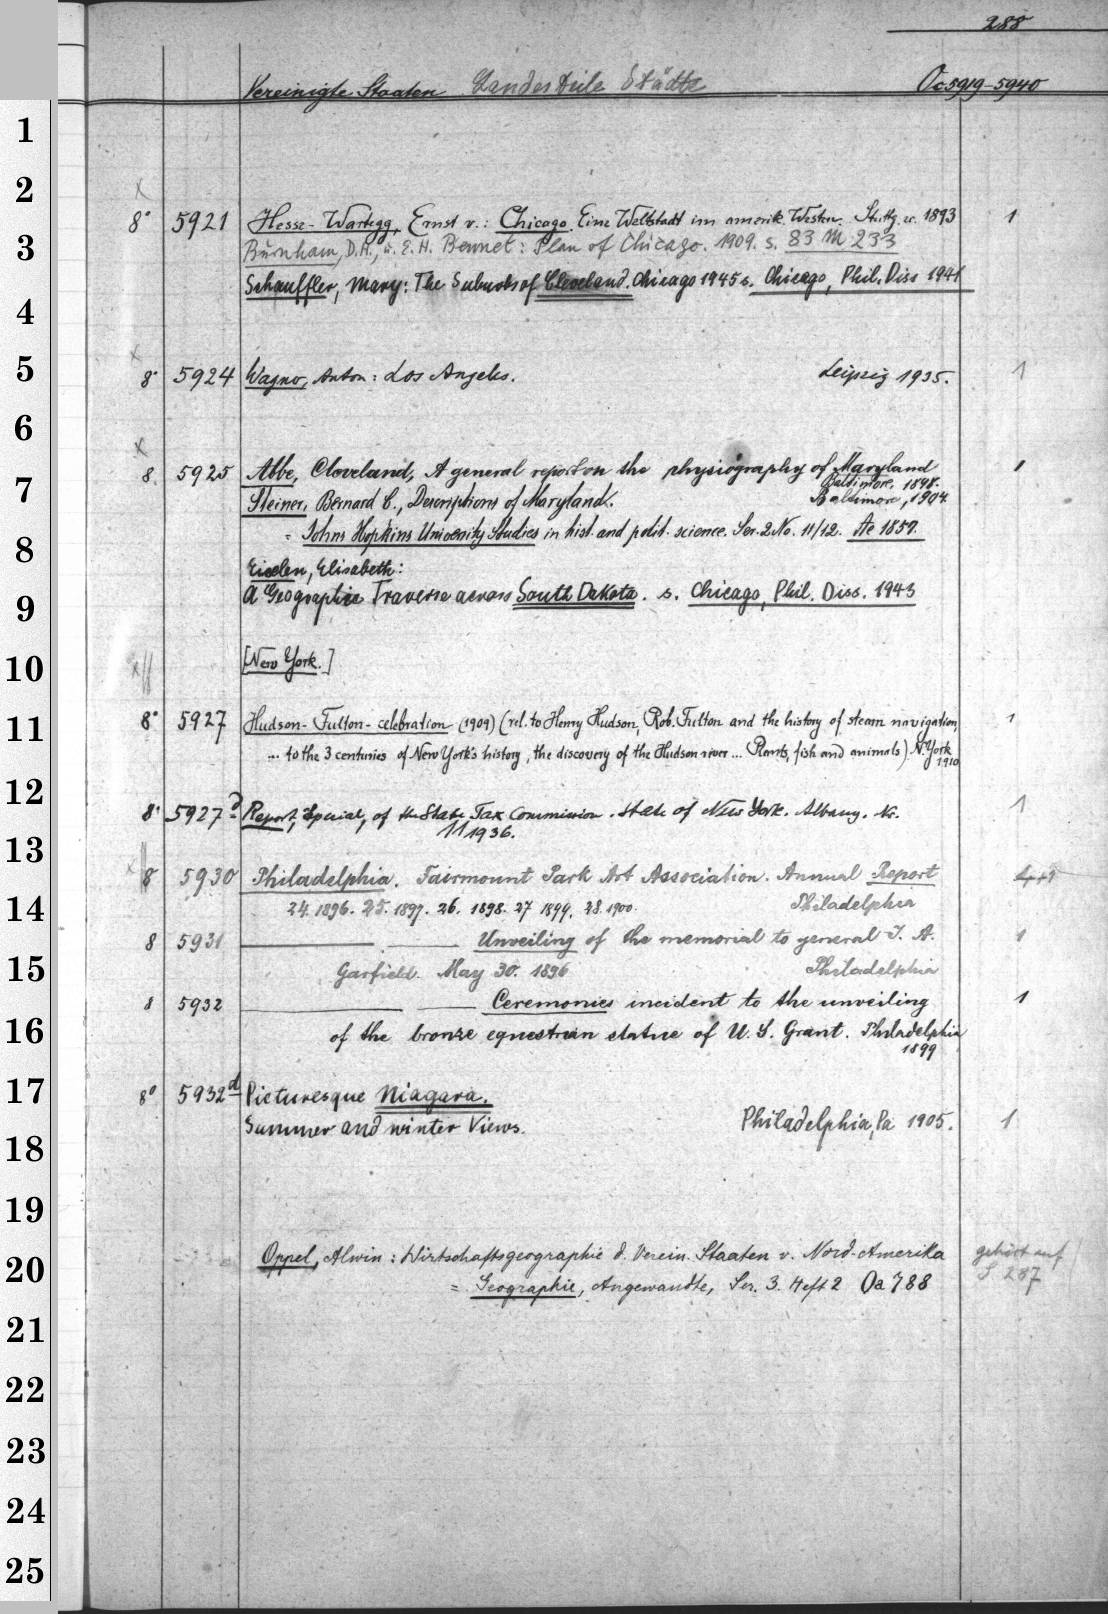 288
Vereinigte Staaten Landesteile Städte Oc 5919-5940
8° 5921 Hesse-Wartegg, Ernst v.: Chicago. Eine Weltstadt im amerik. Westen. Stuttg. 1893 1
Burnham, D.H., u. E.H. Bennet: Plan of Chicago. 1909. s. 83 M 233
Schauffler, Mary: The Suburbs of Cleveland. Chicago 1945 s. Chicago, Phil. Diss 1941
x
8° 5924 Wagner, Anton: Los Angeles. Leipzig 1935. 1
x
8. 5925 Abbe, Cloveland, A general report on the physiography of Maryland 1
Baltimore, 1898.
Steiner, Bernard C., Descriptions of Maryland. Baltimore, 1904.
= Johns Hopkins University Studies in hist. and polit. science. Ser. 2 No. 11/12. Ae 1857.
Eiselen, Elisabeth:
A Geographic Traverse across South Dakota. s. Chicago, Phil. Diss. 1943
[New York.]
8° 5927 Hudson-Fulton-celebration (1909) (rel. to Henry Hudson, Rob. Fulton and the history of steam navigation, 1
... to the 3 centuries of New York's history, the discovery of the Hudson river ... Plants, fish and animals) N. York
1910
8° 5927 d Report, Special, of the State Tax Commission. State of New York. Albany. Nr. 1
11 1936.
8 5930 Philadelphia. Fairmount Park Art Association. Annual Report
24. 1896. 25. 1897. 26. 1898. 27 1899. 28. 1900. Philadelphia
8 5931 Unveiling of the memorial to general J. A. 1
Garfield. May 30. 1896 Philadelphia
8 5932 Ceremonies incident to the unveiling 1
of the bronze equestrian statue of U. S. Grant. Philadelphia
1899
8° 5932 d Picturesque Niagara.
Summer and winter Views. Philadelphia, Pa 1905. 1
Oppel, Alwin: Wirtschaftsgeographie d. Verein. Staaten v. Nord-Amerika gehört auf
= Geographie, Angewandte, Ser. 3. Heft 2 Oa 788 S 287
1
2
3
4
5
6
7
8
9
10
11
12
13
14
15
16
17
18
19
20
21
22
23
24
25